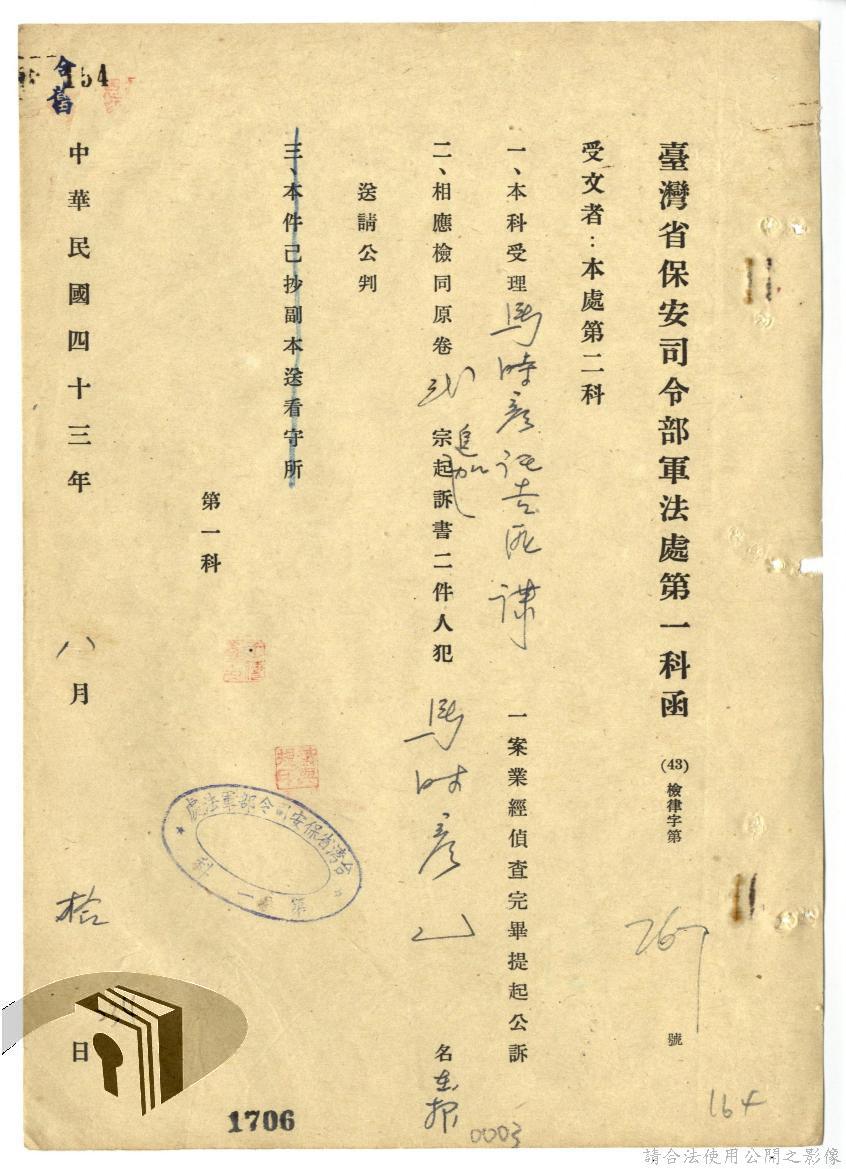 臺灣省保安司令部軍法處第一科函
(43)檢律字第
號
受文者：本處第二科
一、本科受理馬時彥
一案業經偵查完畢提起公訴
二、相應檢同原卷
宗起訴書二件人犯馬時彥
名在押
追加
送請公判
三、本件已抄副本送看守所
第一科
台灣省保安司令部軍法處
第一科
中華民國四十三年八月拾
日
154
1706
0003
164
請合法使用公開之影像